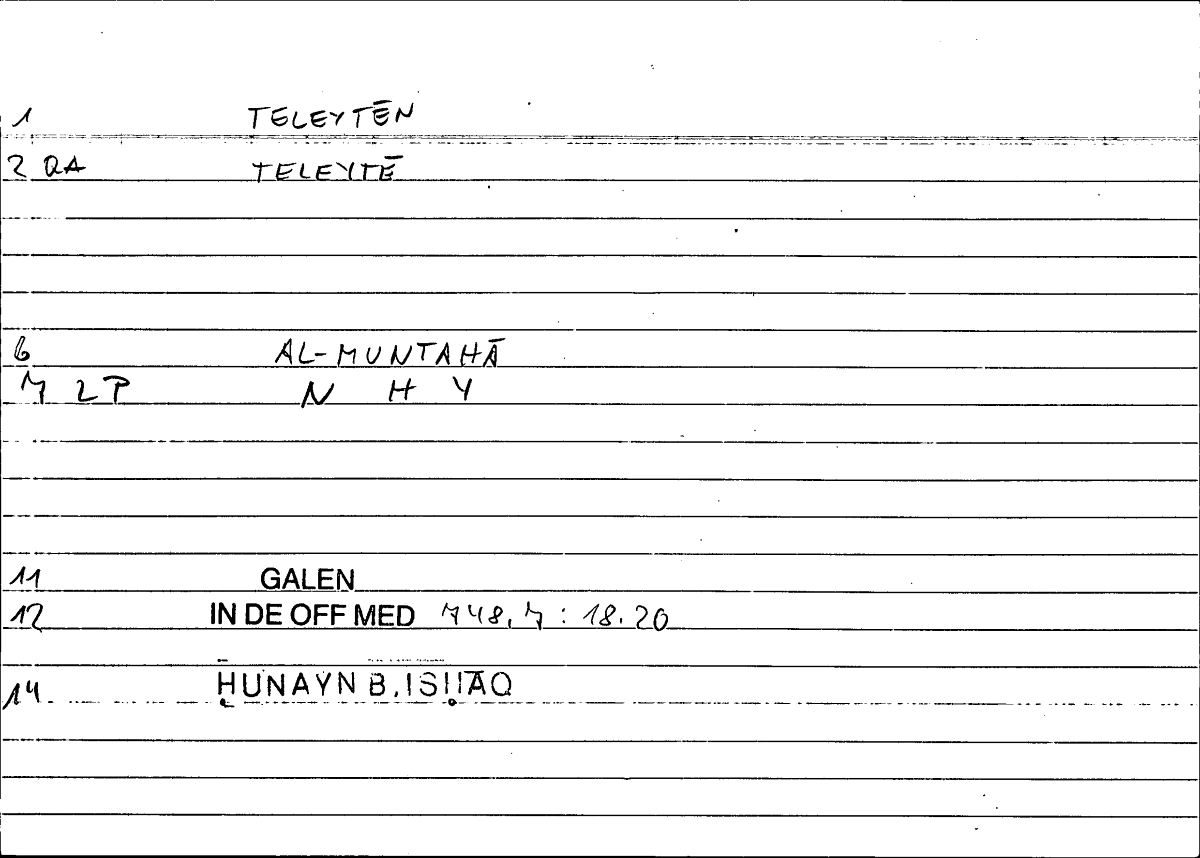 1 TELEYTĒN
2 QA TELEYTĒ
6 AL-MUNTAHĀ
7 2P N H Y
11 GALEN
12 IN DE OFF MED 748,7 : 18.20
14 ḤUNAYN B. ISḤĀQ